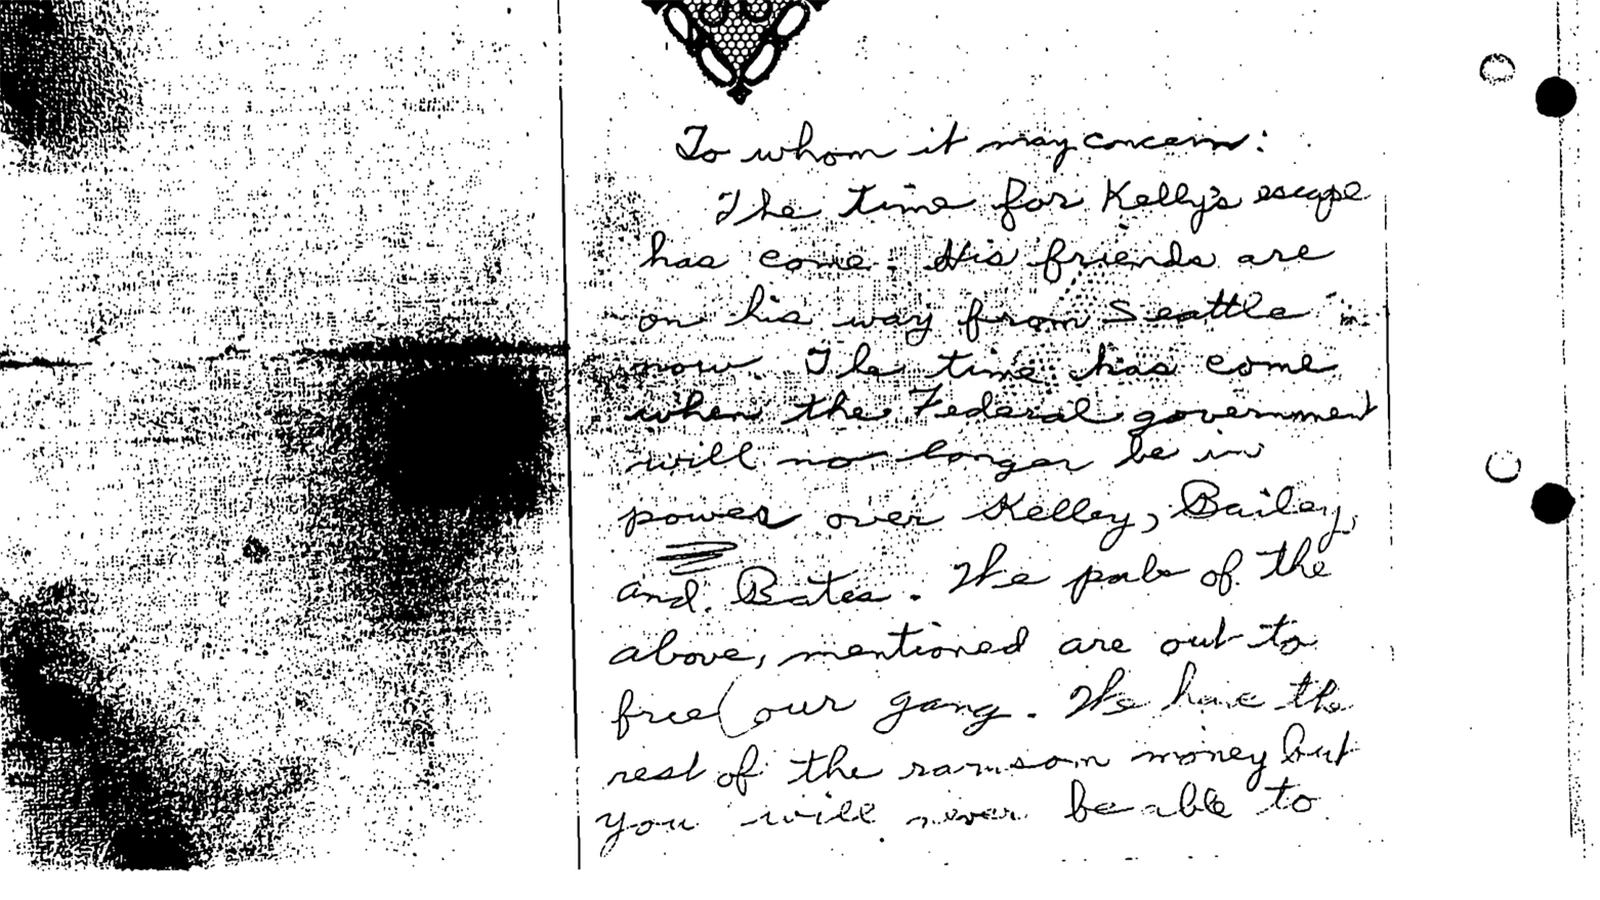 To whom it may concern:
The time for Kelly's escape
has come. His friends are
on his way from Seattle
now. The time has come
when the Federal government
will no longer be in
power over Kelley, Bailey,
and. Bates. We pals of the
above, mentioned are out to
free our gang. We have the
rest of the ransom money but
you will never be able to